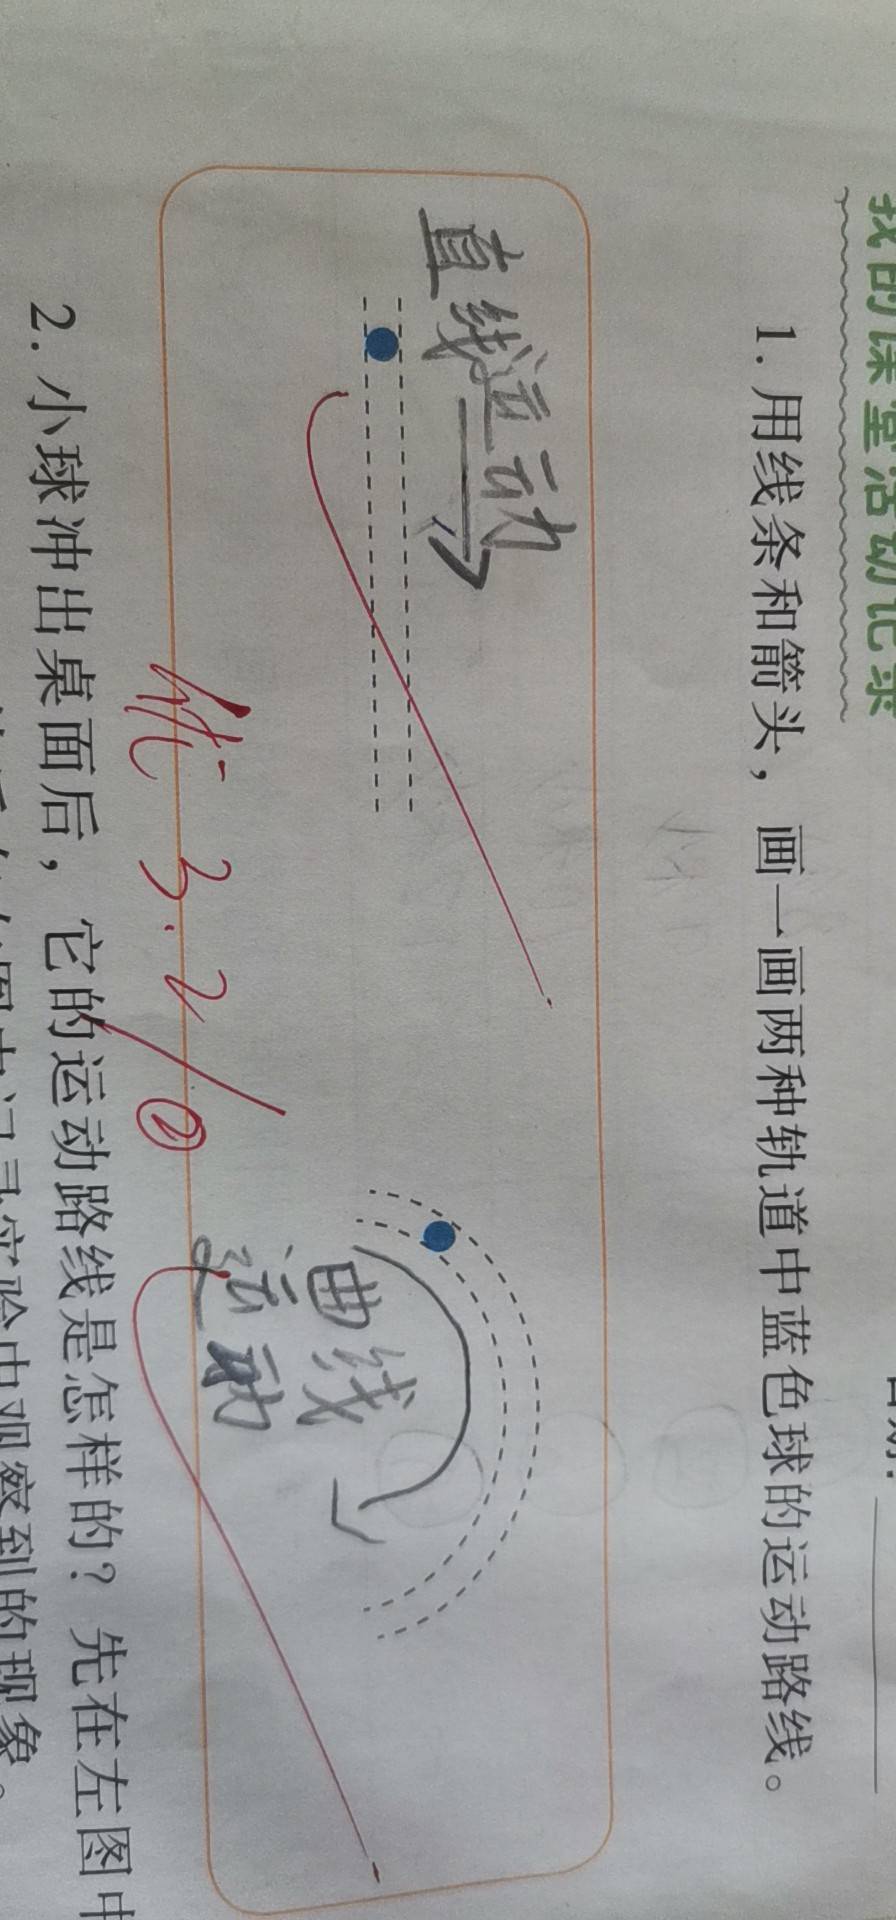 我的课堂活动记录
日期：
1. 用线条和箭头，画一画两种轨道中蓝色球的运动路线。
直线运动
曲线
运动
优 3.2
2. 小球冲出桌面后，它的运动路线是怎样的？先在左图中
实验中观察到的现象。